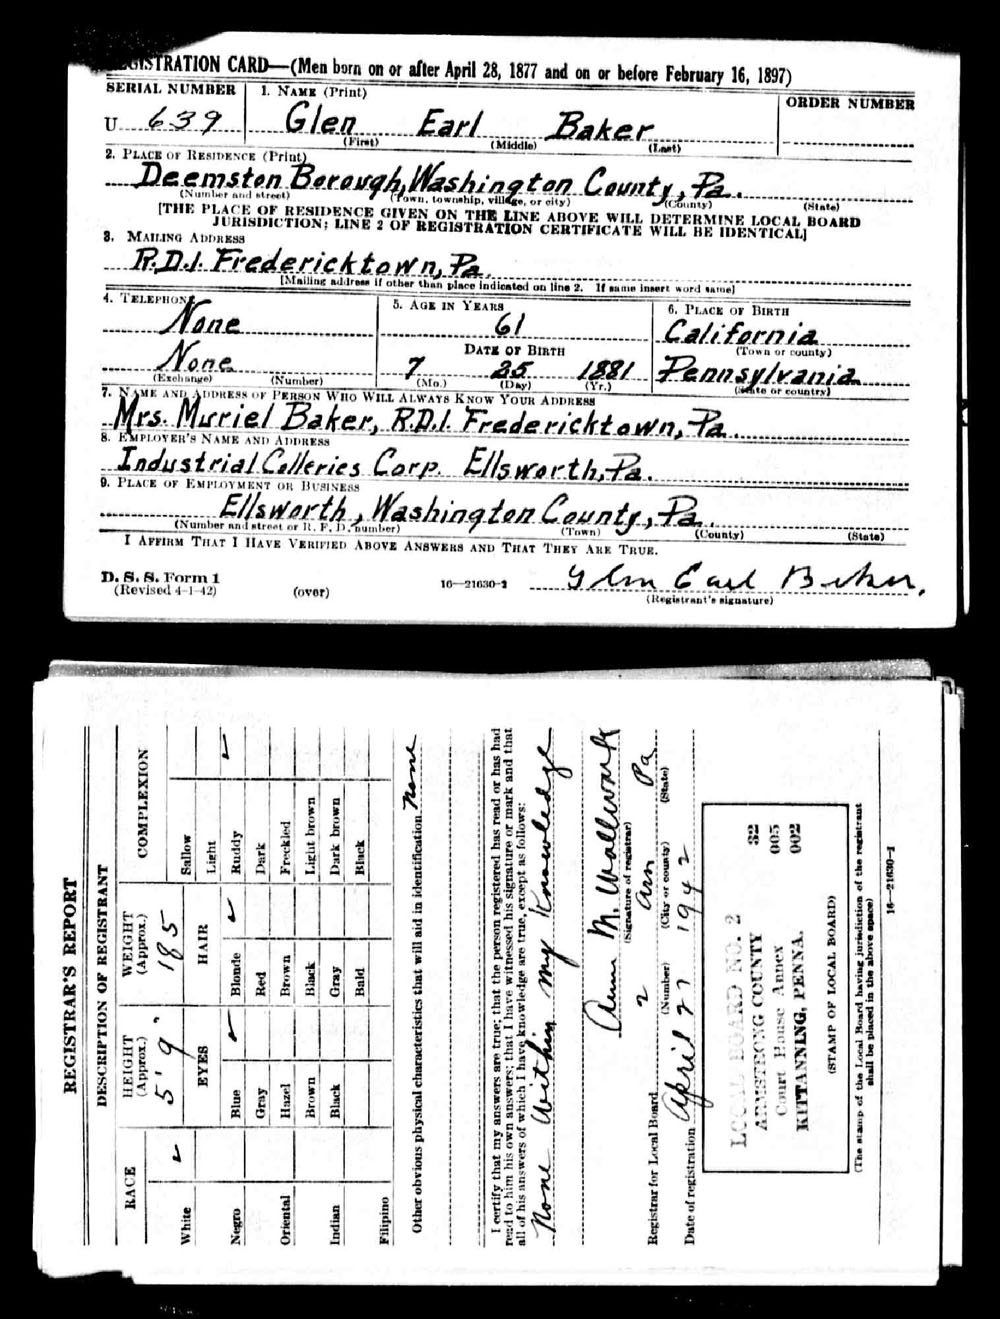 REGISTRATION CARD—(Men born on or after April 28, 1877 and on or before February 16, 1897)
SERIAL NUMBER
1. NAME (Print)
ORDER NUMBER
U 639
Glen Earl Baker
(First) (Middle) (Last)
2. PLACE OF RESIDENCE (Print)
Deemston Borough, Washington County, Pa.
(Number and street) (Town, township, village, or city) (County) (State)
[THE PLACE OF RESIDENCE GIVEN ON THE LINE ABOVE WILL DETERMINE LOCAL BOARD
JURISDICTION; LINE 2 OF REGISTRATION CERTIFICATE WILL BE IDENTICAL]
3. MAILING ADDRESS
R.D.1. Fredericktown, Pa.
[Mailing address if other than place indicated on line 2. If same insert word same]
4. TELEPHONE
5. AGE IN YEARS
6. PLACE OF BIRTH
None
61
California
(Town or county)
DATE OF BIRTH
None
7 25 1881
Pennsylvania
(Exchange) (Number)
(Mo.) (Day) (Yr.)
(State or country)
7. NAME AND ADDRESS OF PERSON WHO WILL ALWAYS KNOW YOUR ADDRESS
Mrs. Muriel Baker, R.D.1. Fredericktown, Pa.
8. EMPLOYER'S NAME AND ADDRESS
Industrial Colleries Corp. Ellsworth, Pa.
9. PLACE OF EMPLOYMENT OR BUSINESS
Ellsworth, Washington County, Pa.
(Number and street or R. F. D. number) (Town) (County) (State)
I AFFIRM THAT I HAVE VERIFIED ABOVE ANSWERS AND THAT THEY ARE TRUE.
D. S. S. Form 1
(Revised 4-1-42)
(over)
16—21630-2
Glen Earl Baker.
(Registrant's signature)
REGISTRAR'S REPORT
DESCRIPTION OF REGISTRANT
RACE
HEIGHT
(Approx.)
WEIGHT
(Approx.)
COMPLEXION
5' 9"
185
EYES
HAIR
White
Sallow
Light
Negro
Blue
Blonde
Ruddy
Gray
Red
Dark
Oriental
Hazel
Brown
Freckled
Brown
Black
Light brown
Indian
Black
Gray
Dark brown
Bald
Black
Filipino
Other obvious physical characteristics that will aid in identification. None
I certify that my answers are true; that the person registered has read or has had
read to him his own answers; that I have witnessed his signature or mark and that
all of his answers of which I have knowledge are true, except as follows:
None Within My Knowledge
Ann M.
(Signature of registrar)
Registrar for Local Board 2 Arm Pa
(Number) (City or county) (State)
Date of registration April 27 1942
LOCAL BOARD NO. 2 32
ARMSTRONG COUNTY 005
Court House Annex 002
KITTANNING, PENNA.
(STAMP OF LOCAL BOARD)
(The stamp of the Local Board having jurisdiction of the registrant
shall be placed in the above space)
16—21630-1